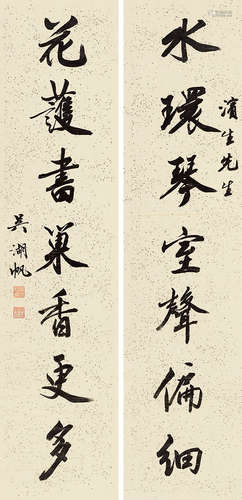 水環琴室聲偏細
濱生先生
花護書巢香更多
吳湖帆